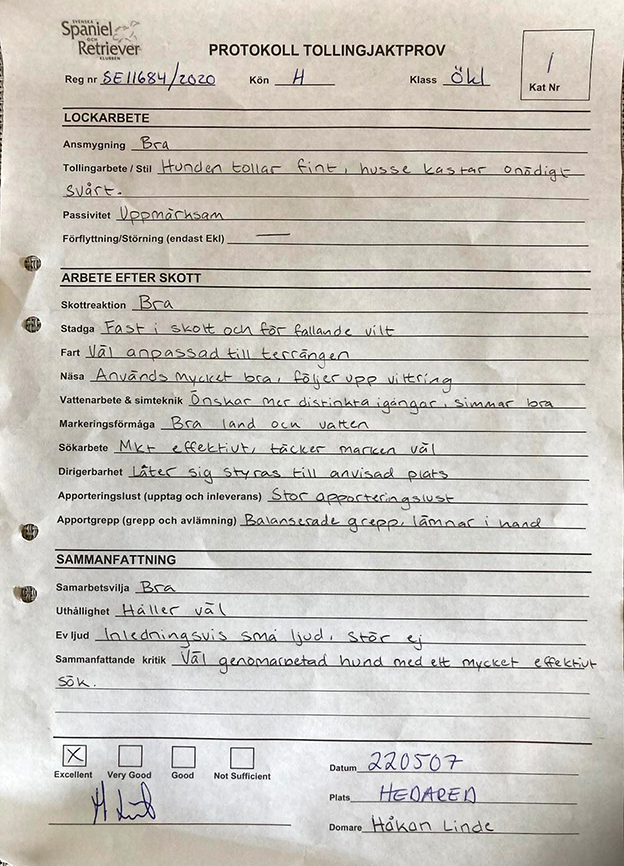 SVENSKA
Spaniel
OCH
Retriever
KLUBBEN
PROTOKOLL TOLLINGJAKTPROV
Reg nr SE11684/2020 Kön H Klass Ökl
1
Kat Nr
LOCKARBETE
Ansmygning Bra
Tollingarbete / Stil Hunden tollar fint, husse kastar onödigt
svårt.
Passivitet Uppmärksam
Förflyttning/Störning (endast Ekl) —
ARBETE EFTER SKOTT
Skottreaktion Bra
Stadga Fast i skott och för fallande vilt
Fart Väl anpassad till terrängen
Näsa Används mycket bra, följer upp vittring
Vattenarbete & simteknik Önskar mer distinkta igångar, simmar bra
Markeringsförmåga Bra land och vatten
Sökarbete Mkt effektivt, täcker marken väl
Dirigerbarhet Låter sig styras till anvisad plats
Apporteringslust (upptag och inleverans) Stor apporteringslust
Apportgrepp (grepp och avlämning) Balanserade grepp, lämnar i hand
SAMMANFATTNING
Samarbetsvilja Bra
Uthållighet Håller väl
Ev ljud Inledningsvis små ljud, stör ej
Sammanfattande kritik Väl genomarbetad hund med ett mycket effektivt
sök.
X
Excellent Very Good Good Not Sufficient
Datum 220507
Plats HEDARED
Domare Håkan Linde